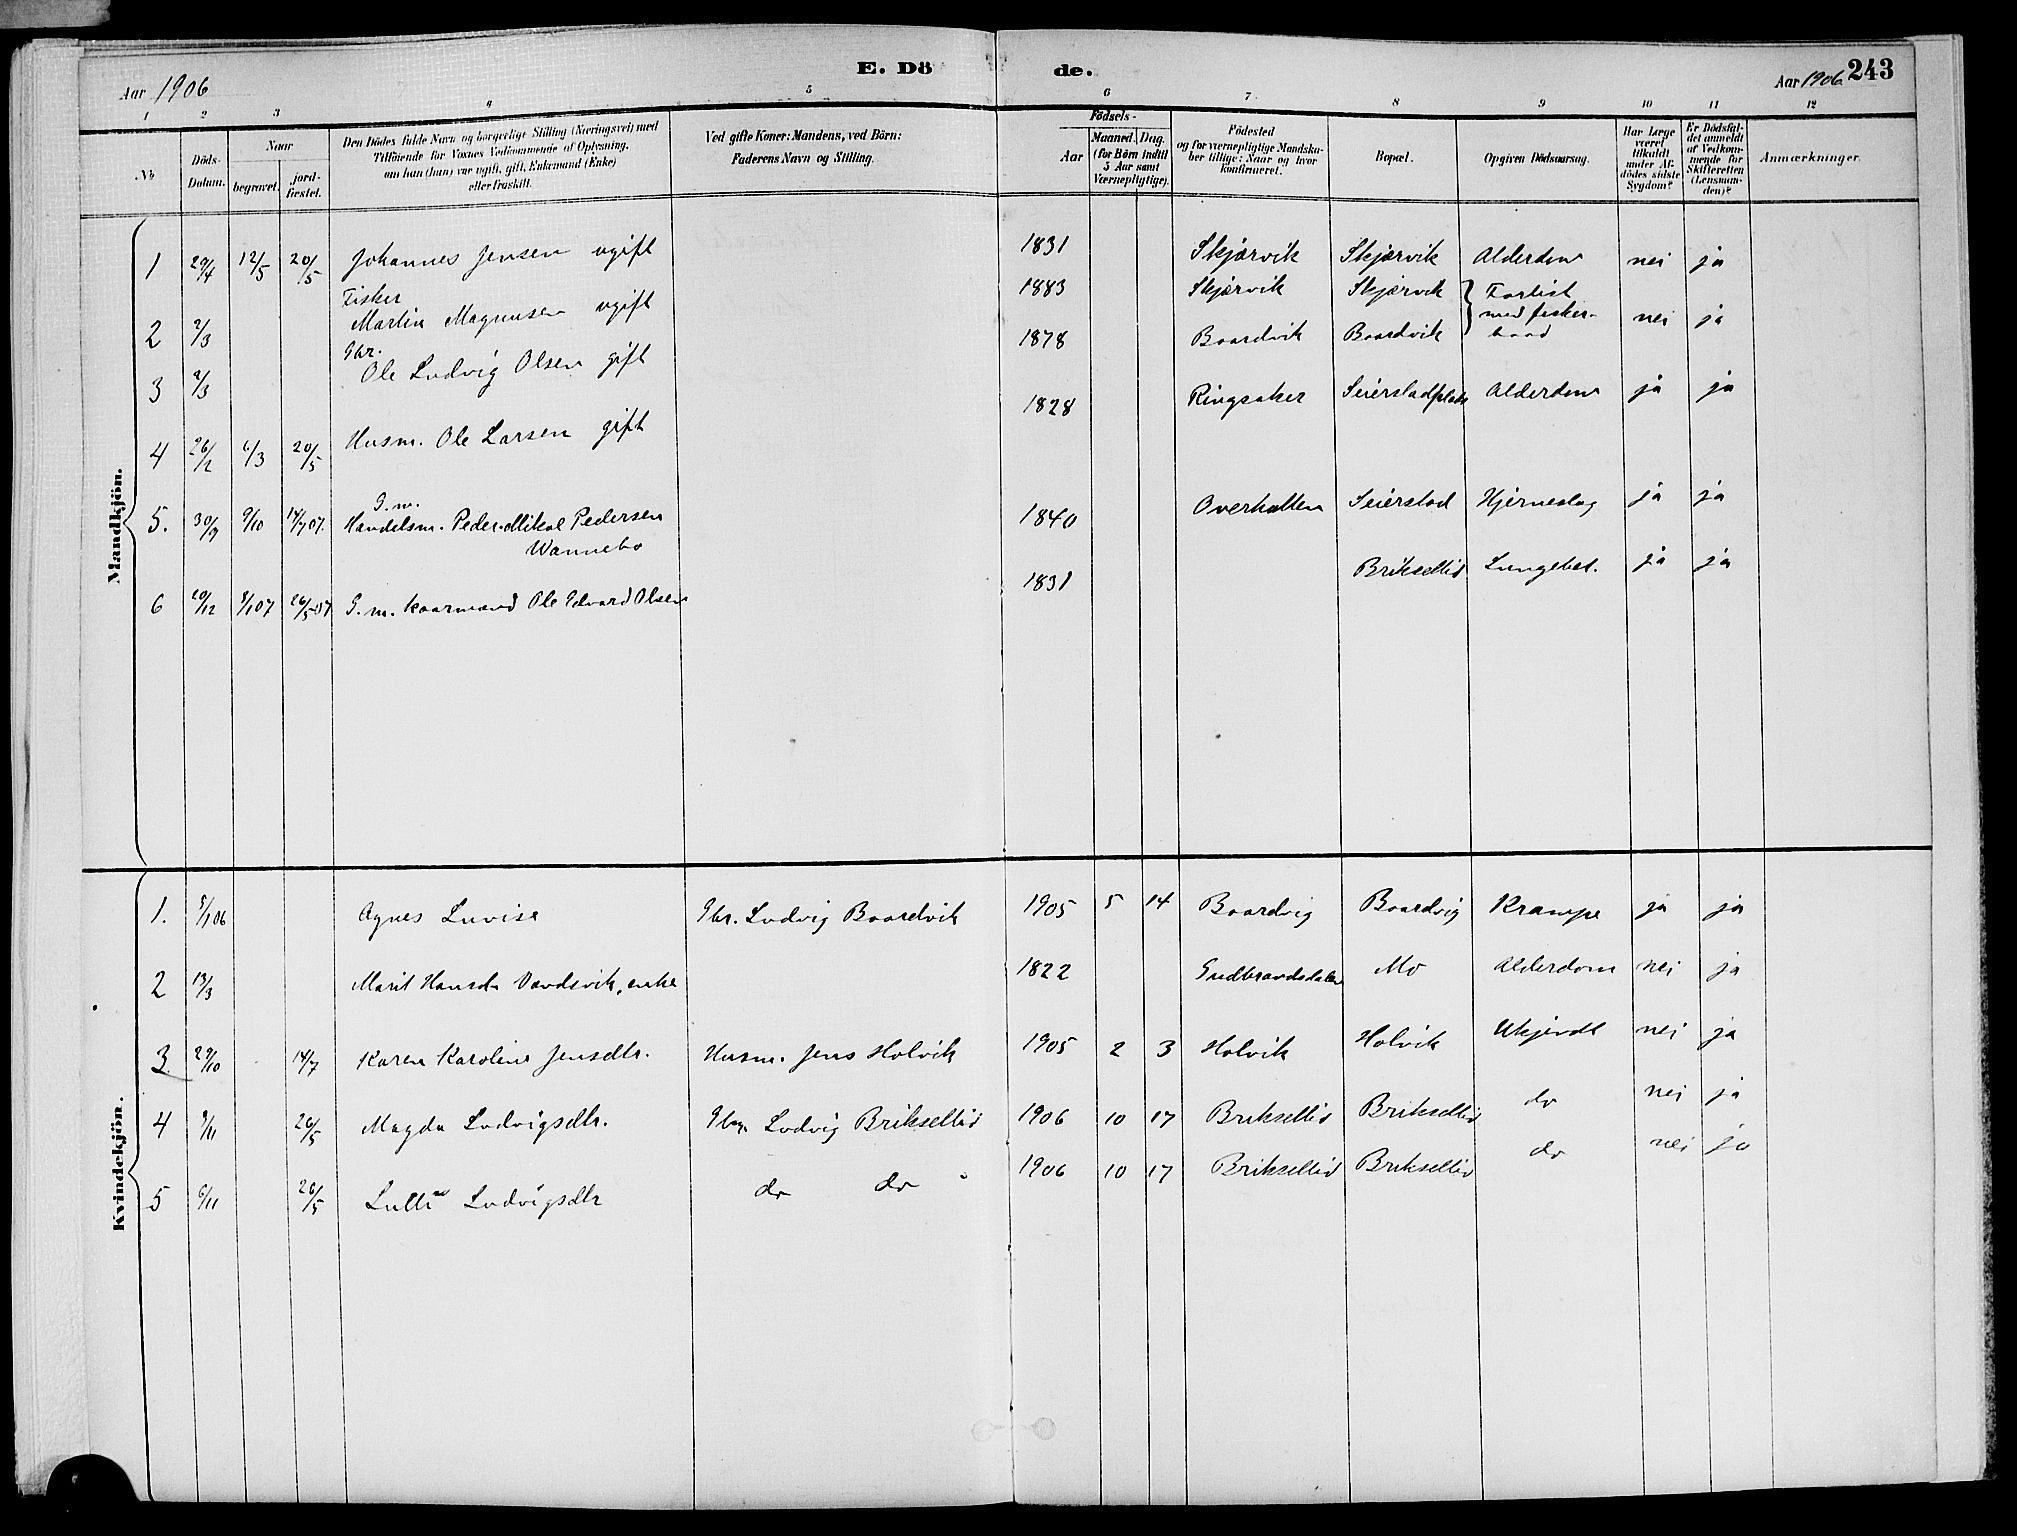 E. Dö de.
Aar 1906
Aar 1906 243
1 2 3 4 5 6 7 8 9 10 11 12
No
Döds-Datum.
Naar
begravet.
jord-fæstet.
Den Dödes fulde Navn og borgerlige Stilling (Næringsvei) med
Tilföiende for Voxnes Vedkommende af Oplysning,
om han (hun) var ugift, gift, Enkemand (Enke)
eller fraskilt.
Ved gifte Koner: Mandens, ved Börn:
Faderens Navn og Stilling.
Födsels-
Aar
Maaned. Dag.
(for Börn indtil
5 Aar samt
Værnepligtige).
Födested
og for værnepligtige Mandska-
ber tillige: Naar og hvor
konfirmeret.
Bopæl.
Opgiven Dödsaarsag.
Har Læge
været
tilkaldt
under Af-
dödes sidste
Sygdom?
Er Dödsfal-
det anmeldt
af Vedkom-
mende for
Skifteretten
(Lensman-
den)?
Anmærkninger.
Mandkjön.
1 29/4 12/5 20/5 Johannes Jensen ugift 1831 Skjærvik Skjærvik Alderdom nei ja
2 2/3 Fisker Martin Magnusen ugift 1883 Skjærvik Skjærvik Forlist med fisker- baad nei ja
3 2/3 Gbr. Ole Ludvig Olsen gift 1878 Baardvik Baardvik
4 26/2 6/3 20/5 Husm. Ole Larsen gift 1828 Ringsaker Seierstadplads Alderdom ja ja
5. 30/9 9/10 14/7 07. G.m. Handelsm. Peder Mikal Pedersen Wannebo 1840 Overhallen Seierstad Hjerneslag ja ja
6 20/12 8/1 07 26/5 07 G.m. kaarmand Ole Edvard Olsen 1831 Briksellid Lungebet. ja ja
Kvindekjön.
1. 5/1 06 Agnes Luvise Gbr. Ludvig Baardvik 1905 5 14 Baardvig Baardvig Krampe ja ja
2 13/3 Marit Hansdr Vandsvik, enke 1822 Gudbrandsdalen Mo Alderdom nei ja
3. 29/10 14/7 Karen Karoline Jensdtr. Husm. Jens Holvik 1905 2 3 Holvik Holvik Ukjendt nei ja
4 9/11 26/5 Magda Ludvigsdtr. Gbr. Ludvig Briksellid 1906 10 17 Briksellid Briksellid do nei ja
5 6/11 26/5 Ludvigsdtr do do 1906 10 17 Briksellid Briksellid do nei ja